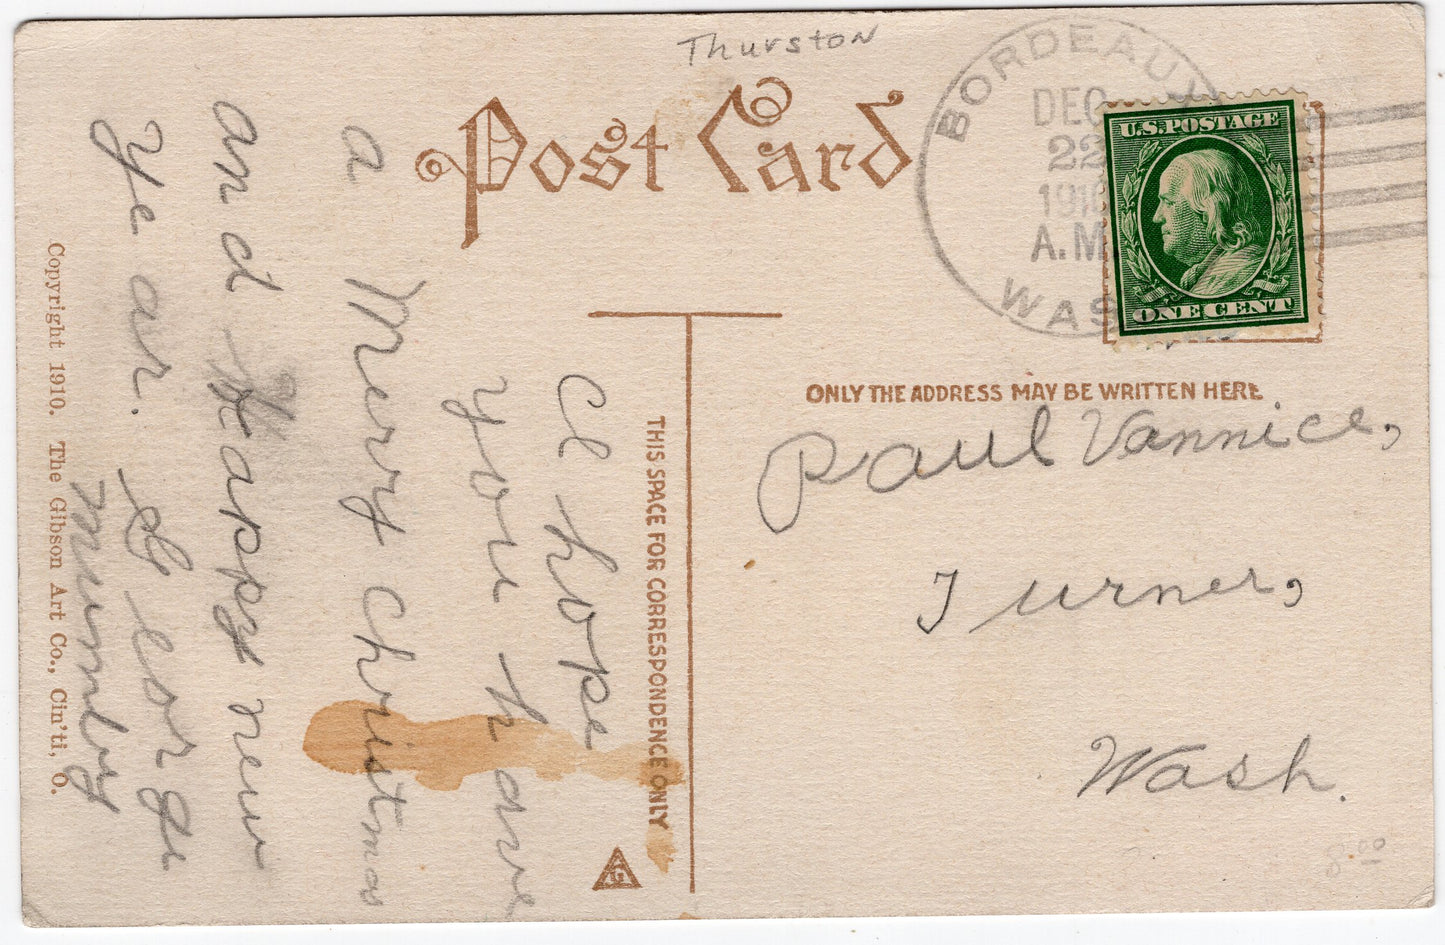 Thurston
Post Card
BORDEAUX
DEC
22
1910
A.M.
WASH
U.S.POSTAGE
ONE CENT
THIS SPACE FOR CORRESPONDENCE ONLY
ONLY THE ADDRESS MAY BE WRITTEN HERE
I hope
you have
a Merry christmas
and Happy new
Ye ar. George
Mumby
Paul Vannice,
Turner,
Wash.
Copyright 1910. The Gibson Art Co., Cin'ti, O.
8.00